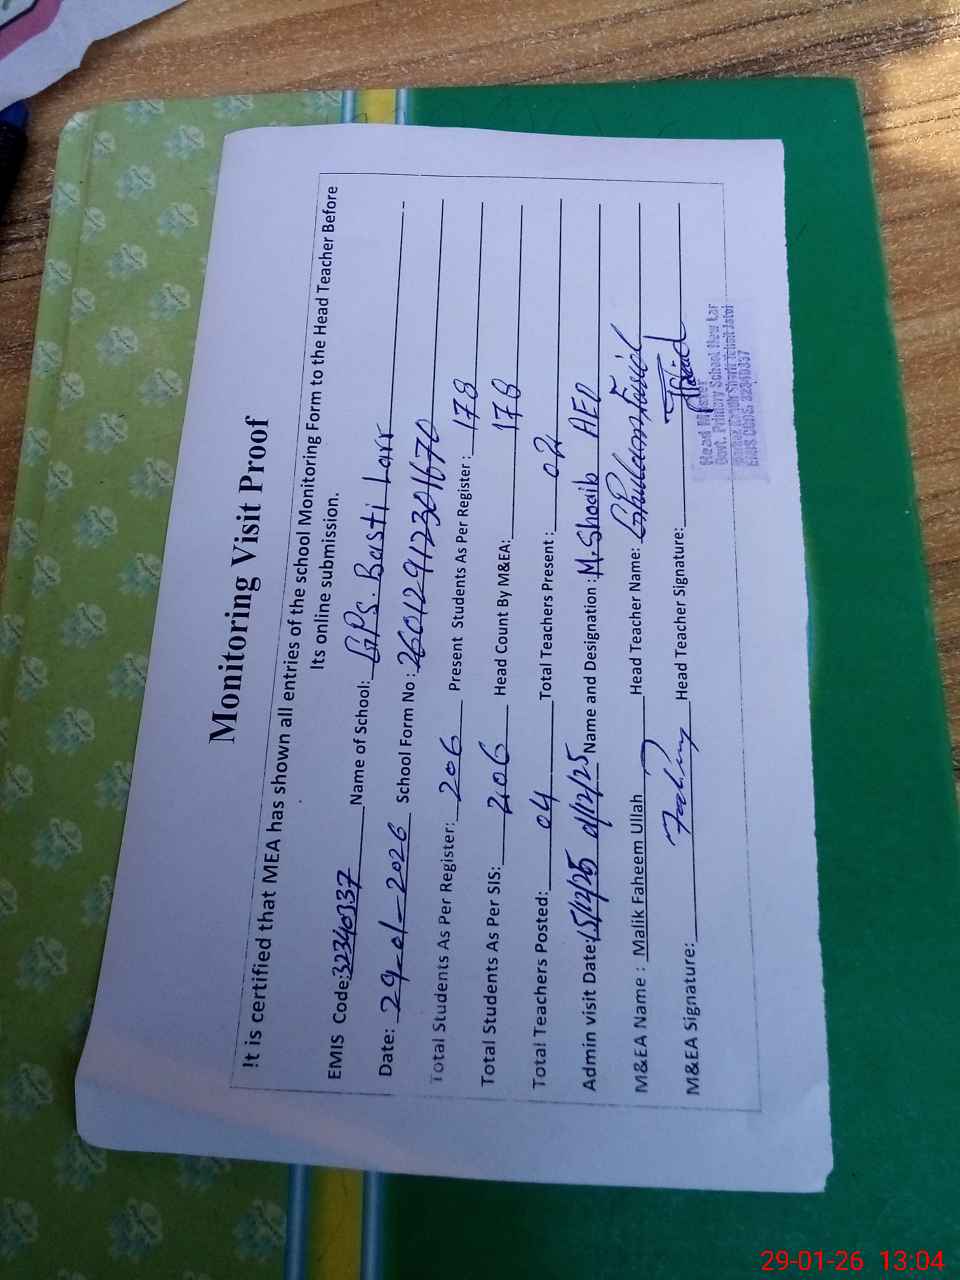 Monitoring Visit Proof
It is certified that MEA has shown all entries of the school Monitoring Form to the Head Teacher Before
Its online submission.
EMIS Code: 32340337 Name of School: GPS. Basti Larr
Date: 29-01-2026 School Form No : 26012912301670
Total Students As Per Register: 206 Present Students As Per Register : 178
Total Students As Per SIS: 206 Head Count By M&EA: 178
Total Teachers Posted: 04 Total Teachers Present : 02
Admin visit Date: 15/12/25 Name and Designation : M.Shoaib AEO
M&EA Name : Malik Faheem Ullah Head Teacher Name: Ghulam
M&EA Signature: Head Teacher Signature:
Head
Govt. Primary School New Lar
Tehsil Jatoi
EMIS CODE: 32340337
29-01-26 13:04